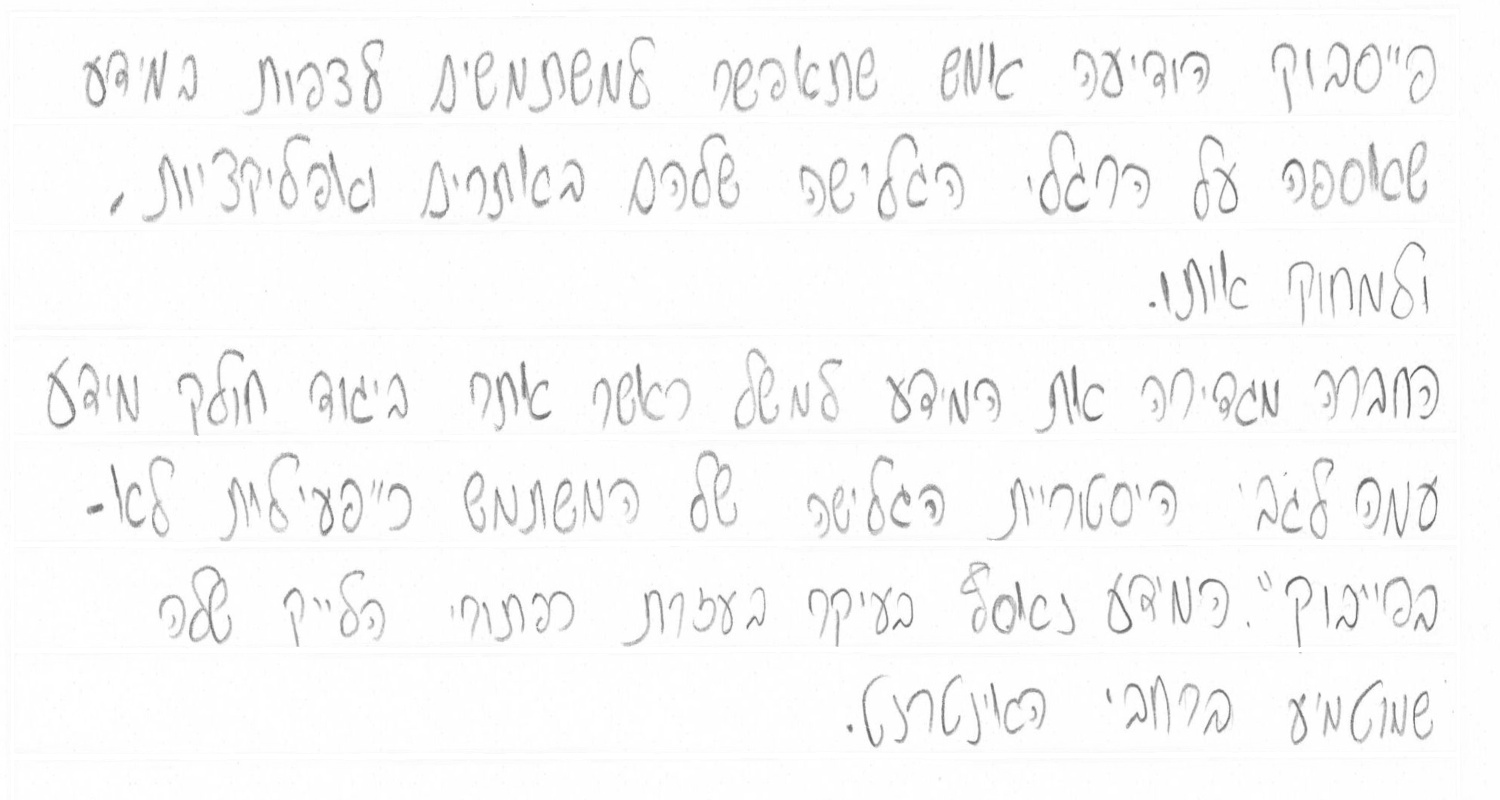 פייסבוק הודיעה אמש שתאפשר למשתמשים לצפות במידע
שאוספה על הרגלי הגלישה שלהם באתרים ואפליקציות,
ולמחוק אותו.
החברה מגדירה את המידע למשל כאשר אתר ביגוד חולק מידע
עמה לגבי היסטוריית הגלישה של המשתמש כ"פעילות לא-
בפייבוק". המידע נאסף בעיקר בעזרת כפתורי הלייק שלה
שמוטמע ברחבי האינטרנט.